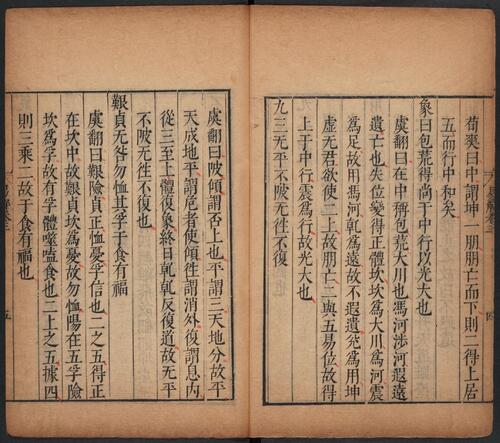 荀爽曰中謂坤一朋朋亡而下則二得上居
五而行中和矣
象曰包荒得尚于中行以光大也
虞翻曰在中稱包荒大川也馮河涉河遐遠
遺亡也失位變得正體坎坎為大川為河震
為足故用馮河乾為遠故不遐遺兊為用坤
虛无君欲使二上故朋亡二與五易位故得
上于中行震為行故光大也
九三无平不陂无往不復
虞翻曰陂傾謂否上也平謂三天地分故平
天成地平謂危者使傾往謂消外復謂息内
從三至上體復象終日乾乾反復道故无平
不陂无往不復也
艱貞无咎勿恤其孚于食有福
虞翻曰艱險貞正恤憂孚信也二之五得正
在坎中故艱貞坎為憂故勿恤陽在五孚險
坎為孚故有孚體噬嗑食也二上之五據四
則三乘二故于食有福也
五